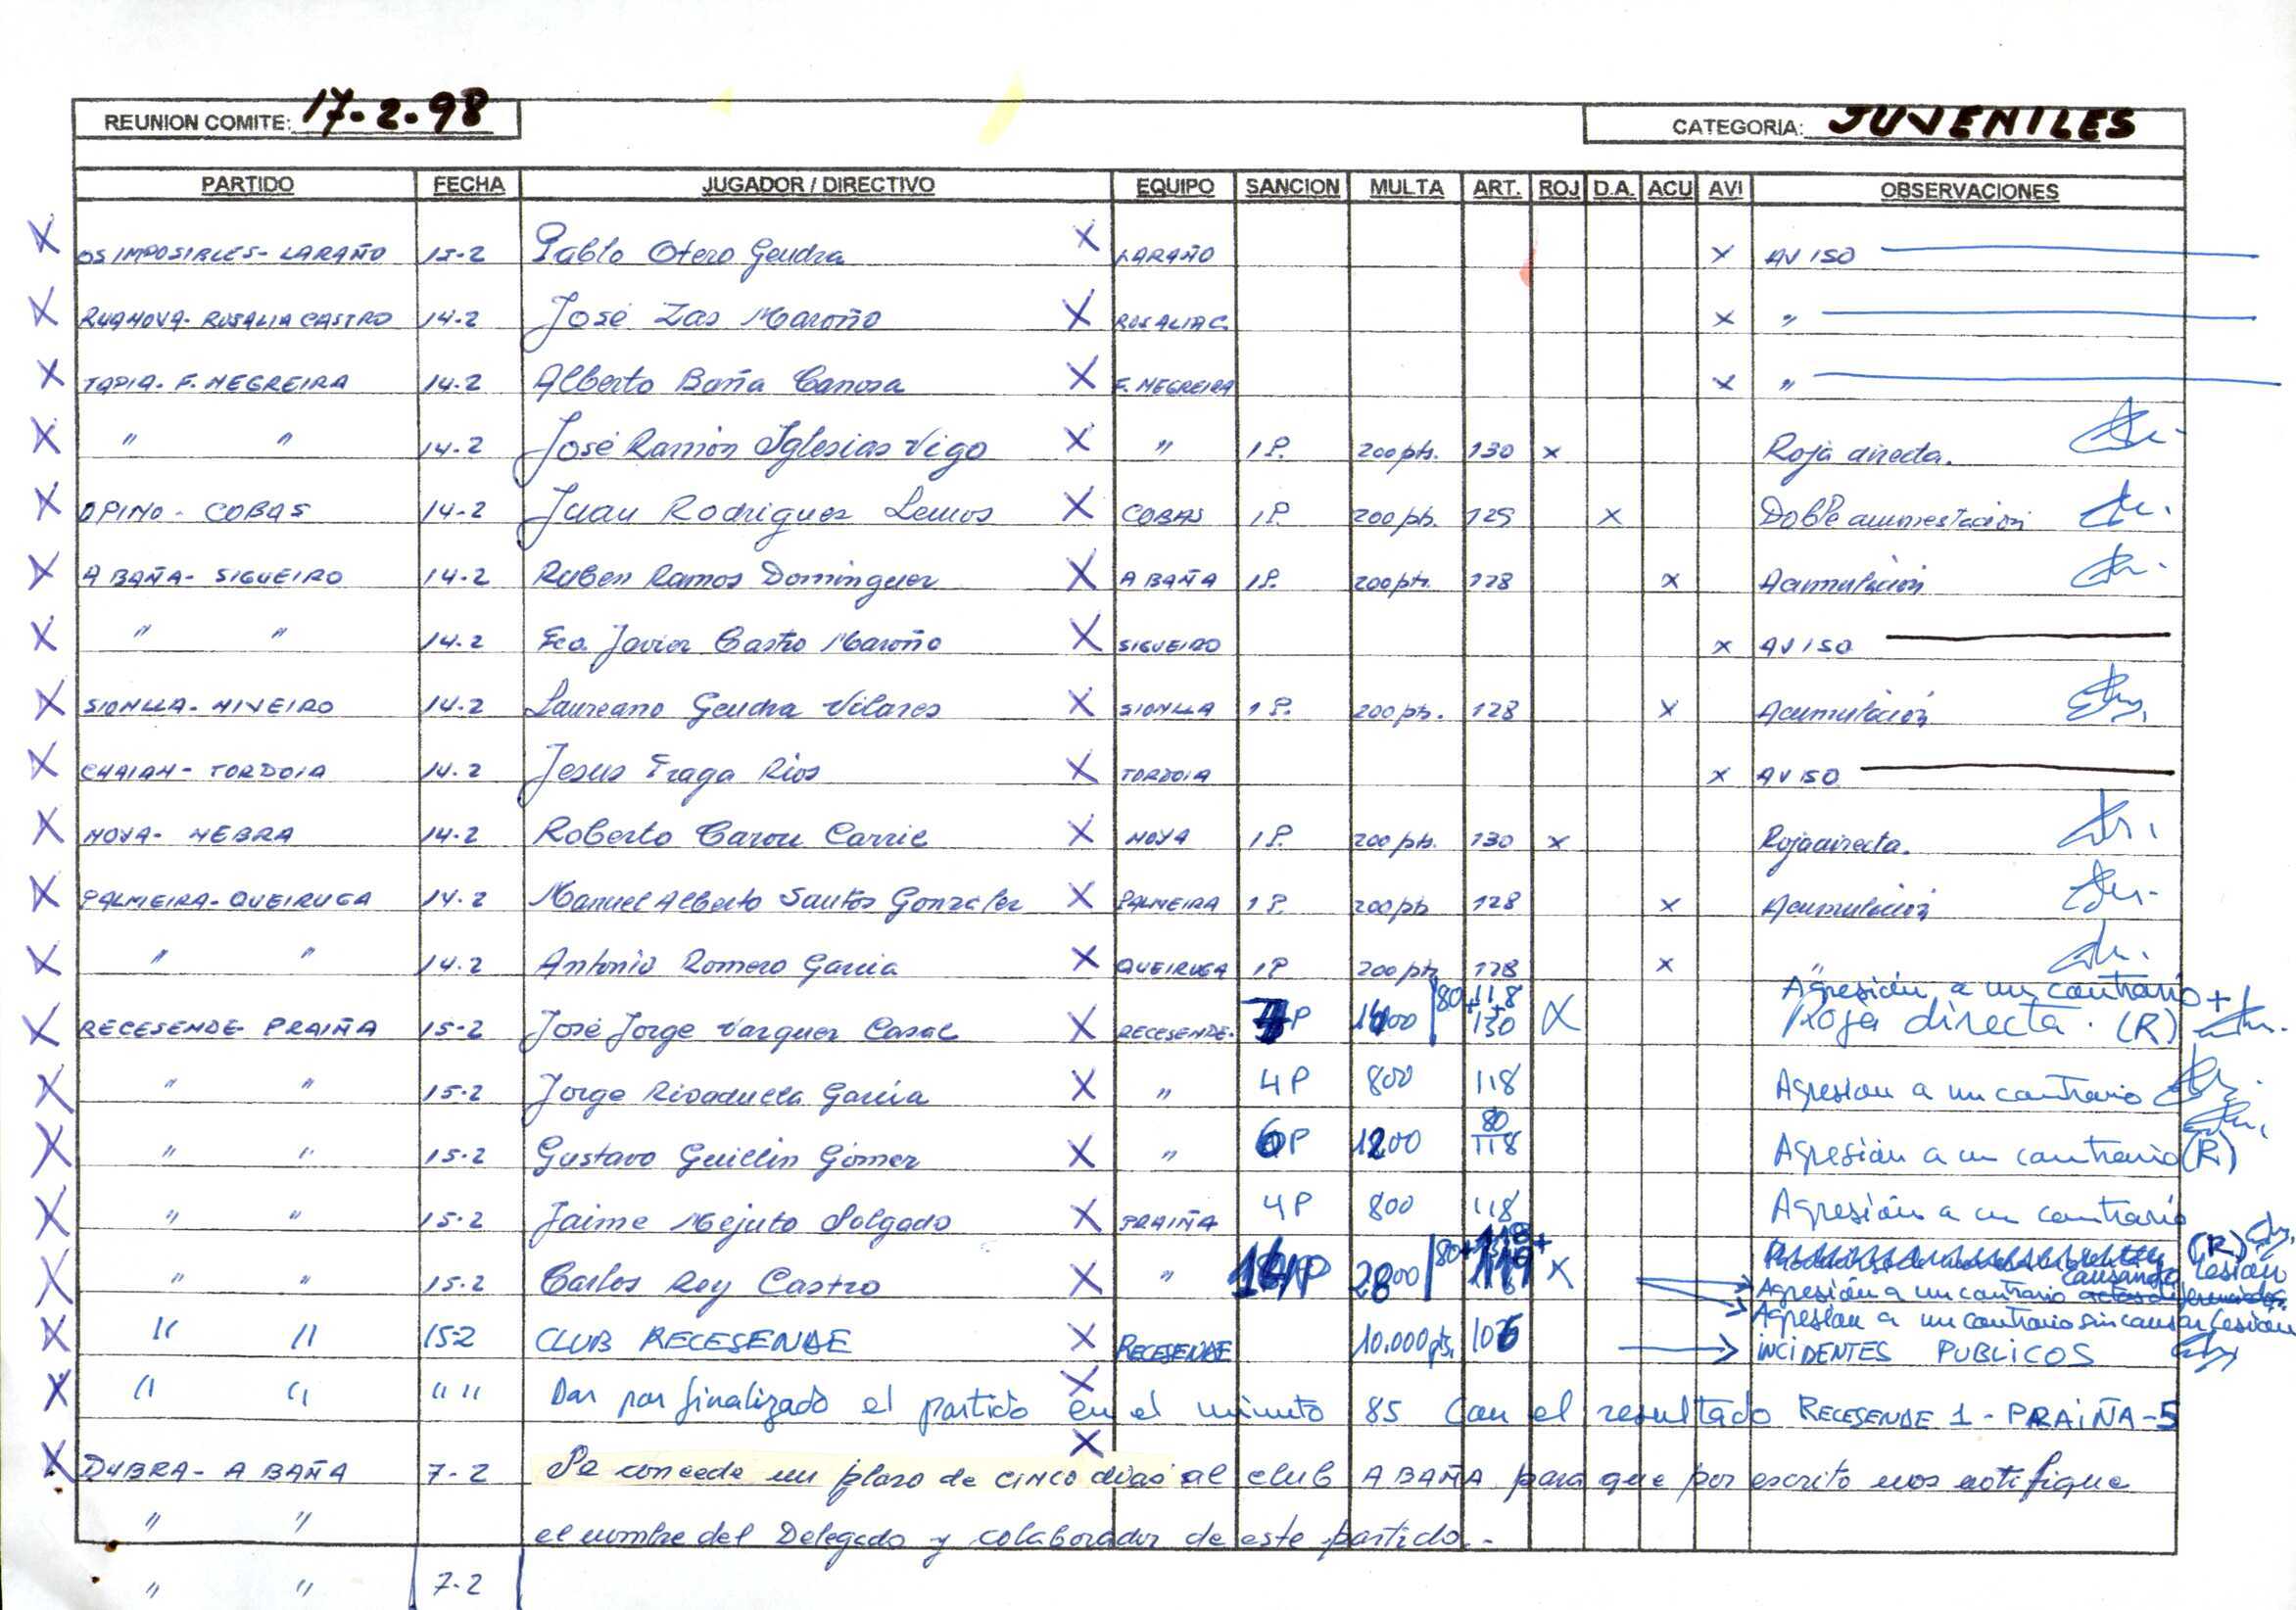 REUNION COMITE: 17-2-98
CATEGORIA: JUVENILES
PARTIDO FECHA JUGADOR / DIRECTIVO EQUIPO SANCION MULTA ART. ROJ D.A. ACU AVI OBSERVACIONES
X OS IMPOSIBLES - LARAÑO 15-2 Pablo Otero Gendra X LARAÑO X AVISO
X RUANOVA - ROSALIA CASTRO 14-2 José Zas Maroño X ROSALIA C. X "
X TAPIA - F. NEGREIRA 14-2 Alberto Baña Canosa X F. NEGREIRA X "
X " " 14-2 José Ramón Iglesias Vigo X " 1P. 200 pts. 130 X Roja directa.
X OPINO - COBAS 14-2 Juan Rodriguez Lemos X COBAS 1P. 200 pts. 129 X Doble amonestación
X A BAÑA - SIGUEIRO 14-2 Ruben Ramos Dominguez X A BAÑA 1P. 200 pts. 128 X Acumulación
X " " 14-2 Fco. Javier Castro Maroño X SIGUEIRO X AVISO
X SIONLLA - NIVEIRO 14-2 Laureano Gendra Vilares X SIONLLA 1P. 200 pts. 128 X Acumulación
X CHAIAN - TORDOIA 14-2 Jesus Fraga Rios X TORDOIA X AVISO
X NOYA - NEBRA 14-2 Roberto Carou Carric X NOYA 1P. 200 pts. 130 X Roja directa.
X PALMEIRA - QUEIRUGA 14-2 Manuel Alberto Santos Gonzalez X PALMEIRA 1P. 200 pts 128 X Acumulación
X " " 14-2 Antonio Romero Garcia X QUEIRUGA 1P 200 pts 128 X "
Agresión a un contrario +
X RECESENDE - PRAIÑA 15-2 José Jorge Vazquez Casal X RECESENDE. P 80+118+130 X Roja directa. (R)
X " " 15-2 Jorge Rivadulla Garcia X " 4P 800 118 Agresion a un contrario
X " " 15-2 Gustavo Guillin Gómez X " 6P 1200 80 118 Agresión a un contrario (R)
X " " 15-2 Jaime Mejuto Salgado X PRAIÑA 4P 800 118 Agresión a un contrario
X " " 15-2 Carlos Rey Castro X " 14P 2800 80+118+119 X (R)
Agresión a un contrario causando lesión
Agresion a un contrario sin causar lesion
X " " 15-2 CLUB RECESENDE X RECESENDE 10.000 pts. 106 INCIDENTES PUBLICOS
X " " " " Dar por finalizado el partido X en el minuto 85 con el resultado RECESENDE 1 - PRAIÑA - 5
X DUBRA - A BAÑA 7-2 Se concede un plazo de CINCO días X al club A BAÑA para que por escrito nos notifique
" " el nombre del Delegado y colaborador de este partido.-
" " 7-2